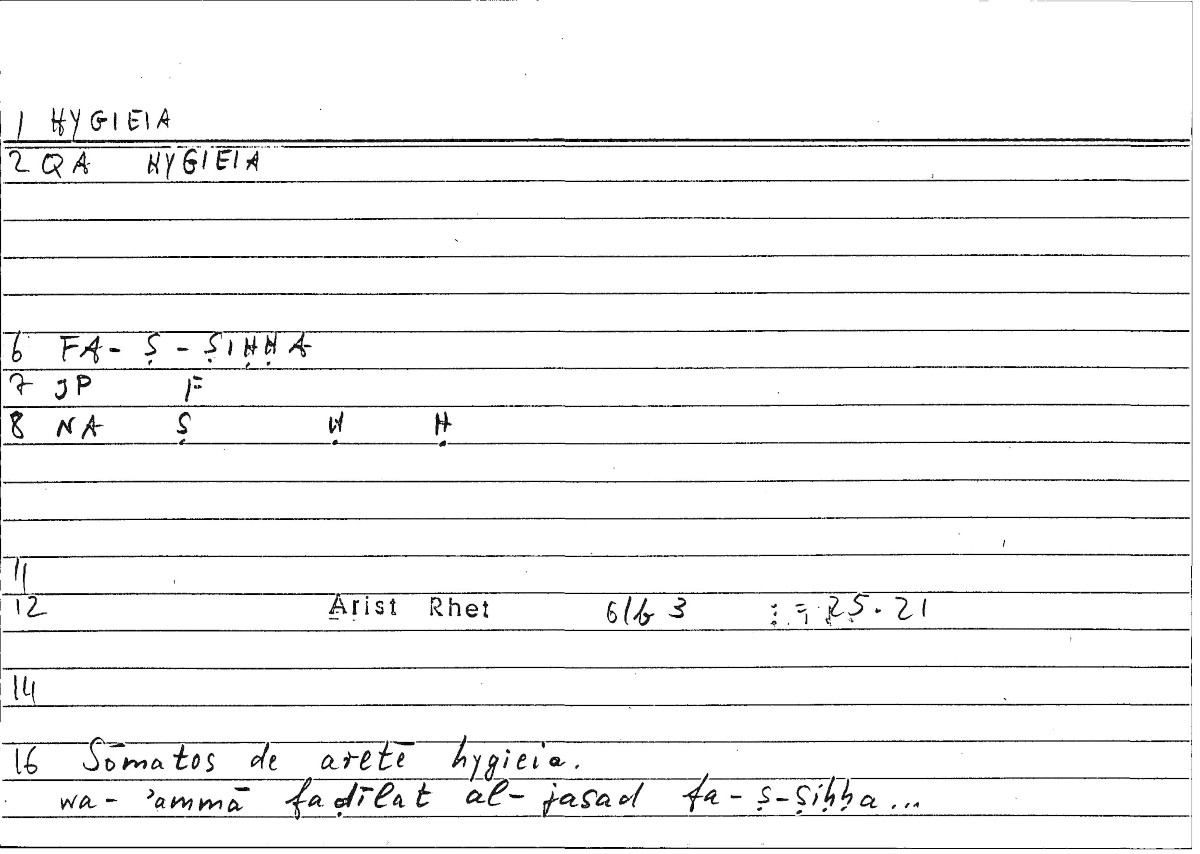 1 HYGIEIA
2 QA HYGIEIA
6 FA- Ṣ - ṢIḤḤA
7 JP F
8 NA Ṣ Ẉ Ḥ
11
12 Arist Rhet 61b3 := 25.21
14
16 Sōmatos de aretē hygieia.
wa- 'ammā faḍīlat al-jasad fa-ṣ-ṣiḥḥa...